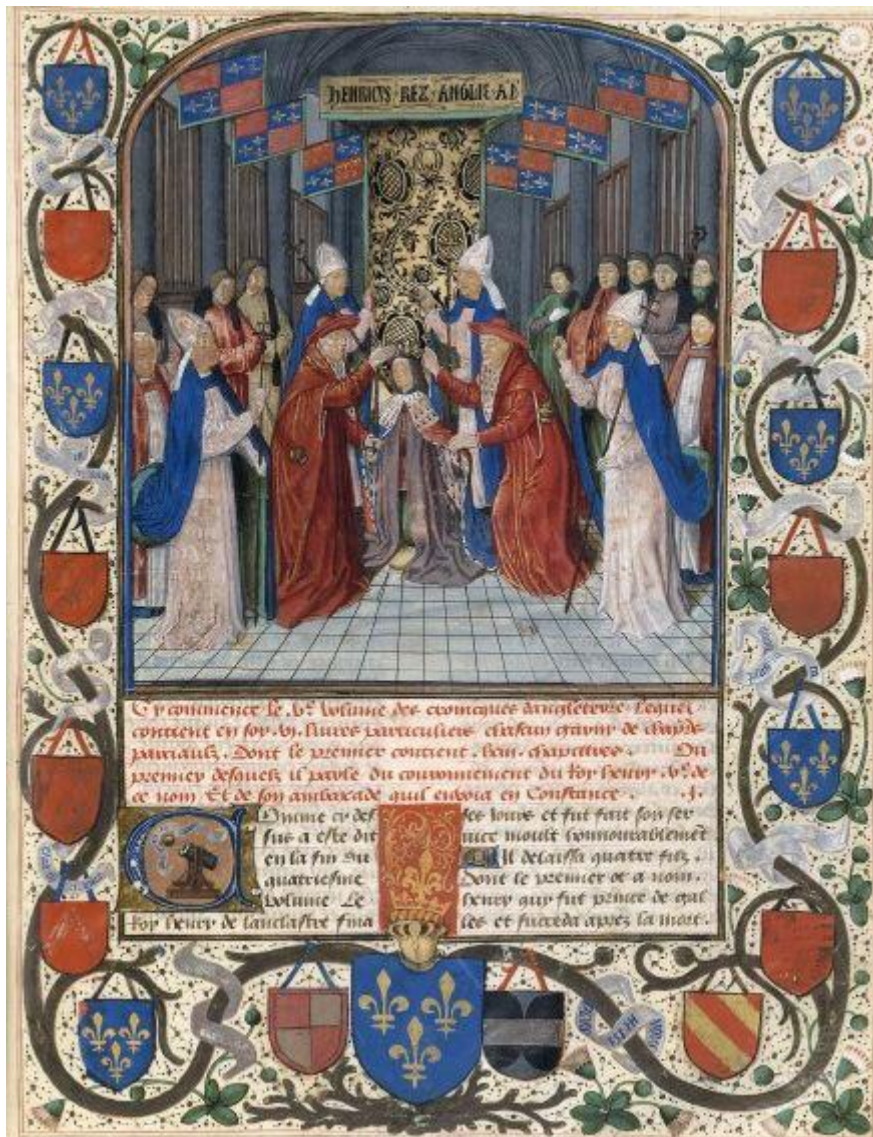 HENRICVS · REX · ANGLIE · A
Cy commence le .vᵉ. volume des cronicques dangleterre lequel
contient en soy .vj. livres particuliers
parciaulx . Dont le premier contient . chapittres . Ou
premier desquelz il parle du couronnement du Roy henry .vᵉ. de
ce nom Et de son ambaxade quil envoia en Constance . .j.
Comme cy des
sus a este dit
en la fin du
quatriesme
volume Le
Roy henry de lanclastre fina
ses jours et fut fait son ser
vice moult honnourablement
Il delaissa quatre filz .
Dont le premier ot a nom .
henry qui fut prince de gal
les et succeda aprez la mort .